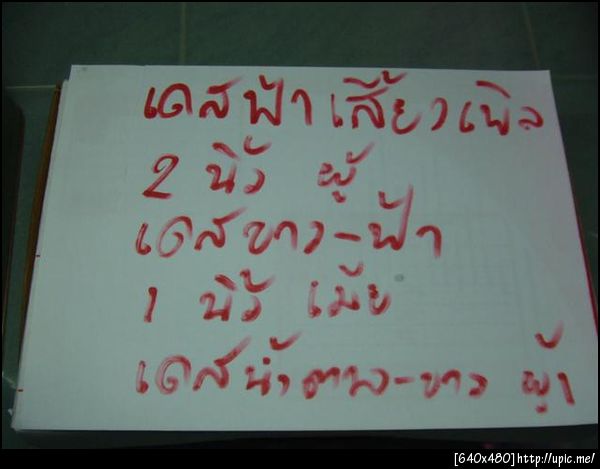 เดสฟ้า เสี้ยวเพิล
2 นิ้ว ผู้
เดสขาว-ฟ้า
1 นิ้ว เมีย
เดสน้ำตาล-ขาว ผู้ 1
[640x480]http://upic.me/